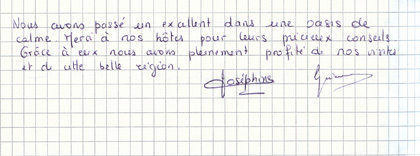 Nous avons passé un excellent dans une oasis de
calme. Merci à nos hôtes pour leurs précieux conseils.
Grâce à eux nous avons pleinement profité de nos visites
et de cette belle région.
Joséphine